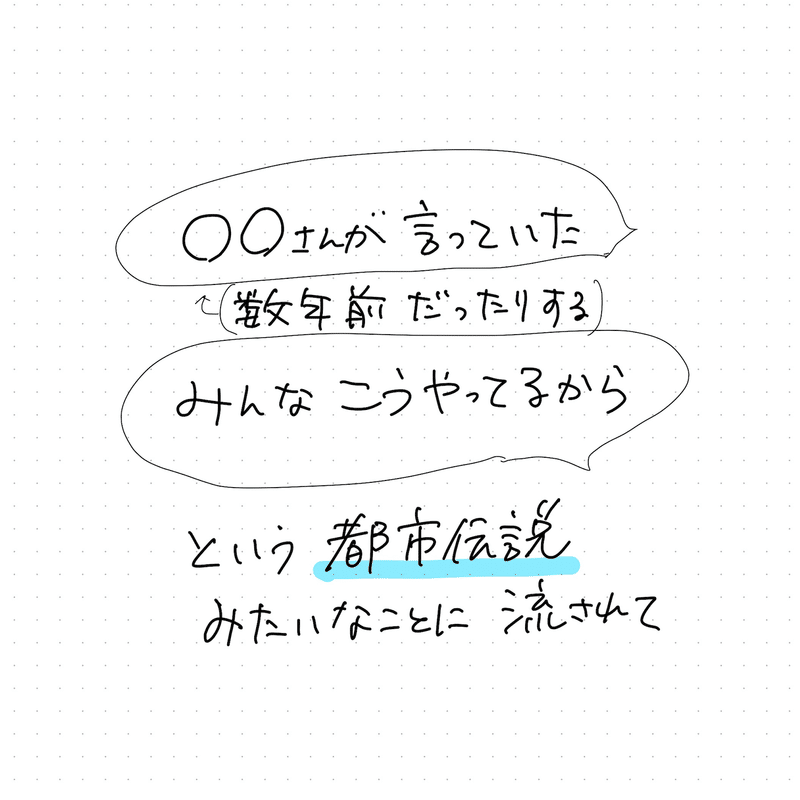 〇〇さんが 言っていた
数年前 だったりする
みんな こうやってるから
という 都市伝説
みたいなことに 流されて